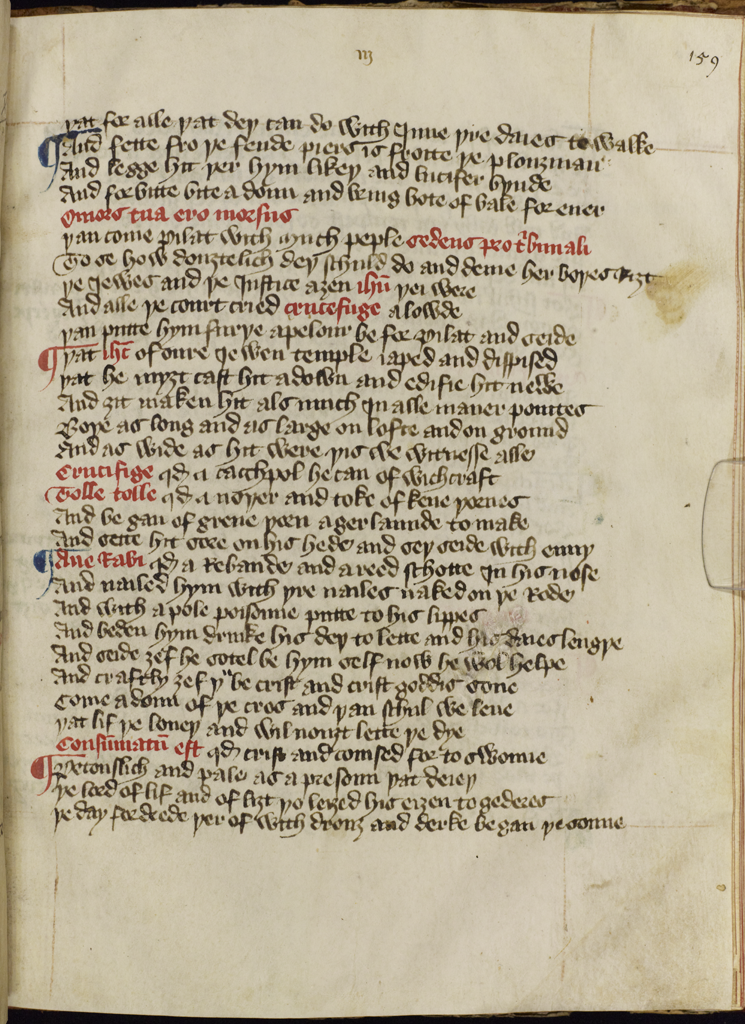 m
159
þat for alle þat dey can do with Inne þre daies to walke
And fette fro þe fende piers is frotte þe plouȝman
And legge hit þer hym likeþ and lucifer bynde
And for bitte bite a doun and bring bote of bale for euer
O mors tua ero morsus
þan come pilat with much peple sedens pro tribunali
To se how douȝtelich dey schuld do and deme her boþes riȝt
þe Jewes and þe Justice aȝen ihū þei were
And alle þe court cried crucefuge a lowde
þan putte hym furþe a pelour be for pilat and seide
þat ihc of oure Jewen temple iaped and dispised
þat he myȝt cast hit a down and edifie hit newe
And ȝit maken hit als much In alle maner pointes
Boþe as long and as large on lofte and on ground
And as wide as hit were þis we witnesse alle
Crucifige qd a cacchpol he can of wichcraft
Tolle tolle qd a noyer and toke of kene þornes
And be gan of grene þorn a gerlaunde to make
And sette hit sore on his hede and sey seide with enuy
Aue Rabi qd a Rebaude and a reed schotte In his nose
And nailed hym with þre nailes naked on þe Rode
And with a pole poisoune putte to his lippes
And beden hym drinke his dey to lette and his daies lengþe
And seide ȝef he sotel be hym self now he wol helpe
And crafthy ȝef þu be crist and crist goddis sone
Come a doun of þe cros and þan schul we leue
þat lif þe loueþ and wil nouȝt lette þe dye
Consūmatū est qd crist and comsed for to swoune
Petouslich and pale as a presoun þat deieþ
þe lord of lif and of liȝt þo leyed his eiȝen to gederes
þe day for drede þer of with drouȝ and derke be gan þe sonne